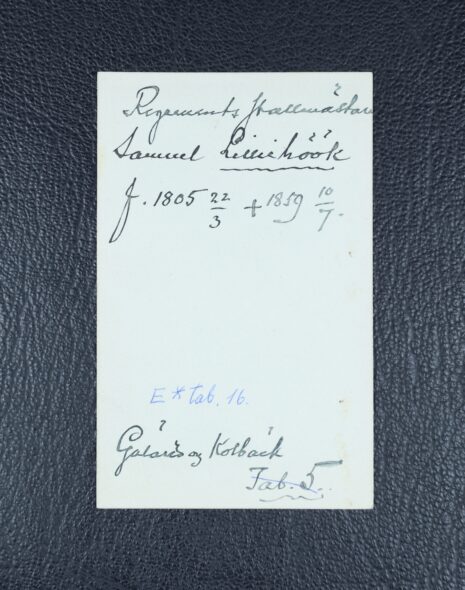 Regements Stallmästare
Samuel Lilliehöök
f. 1805 22/3 + 1859 10/7.
E * tab. 16.
Gälarås og Kolbäck
Tab. 5.